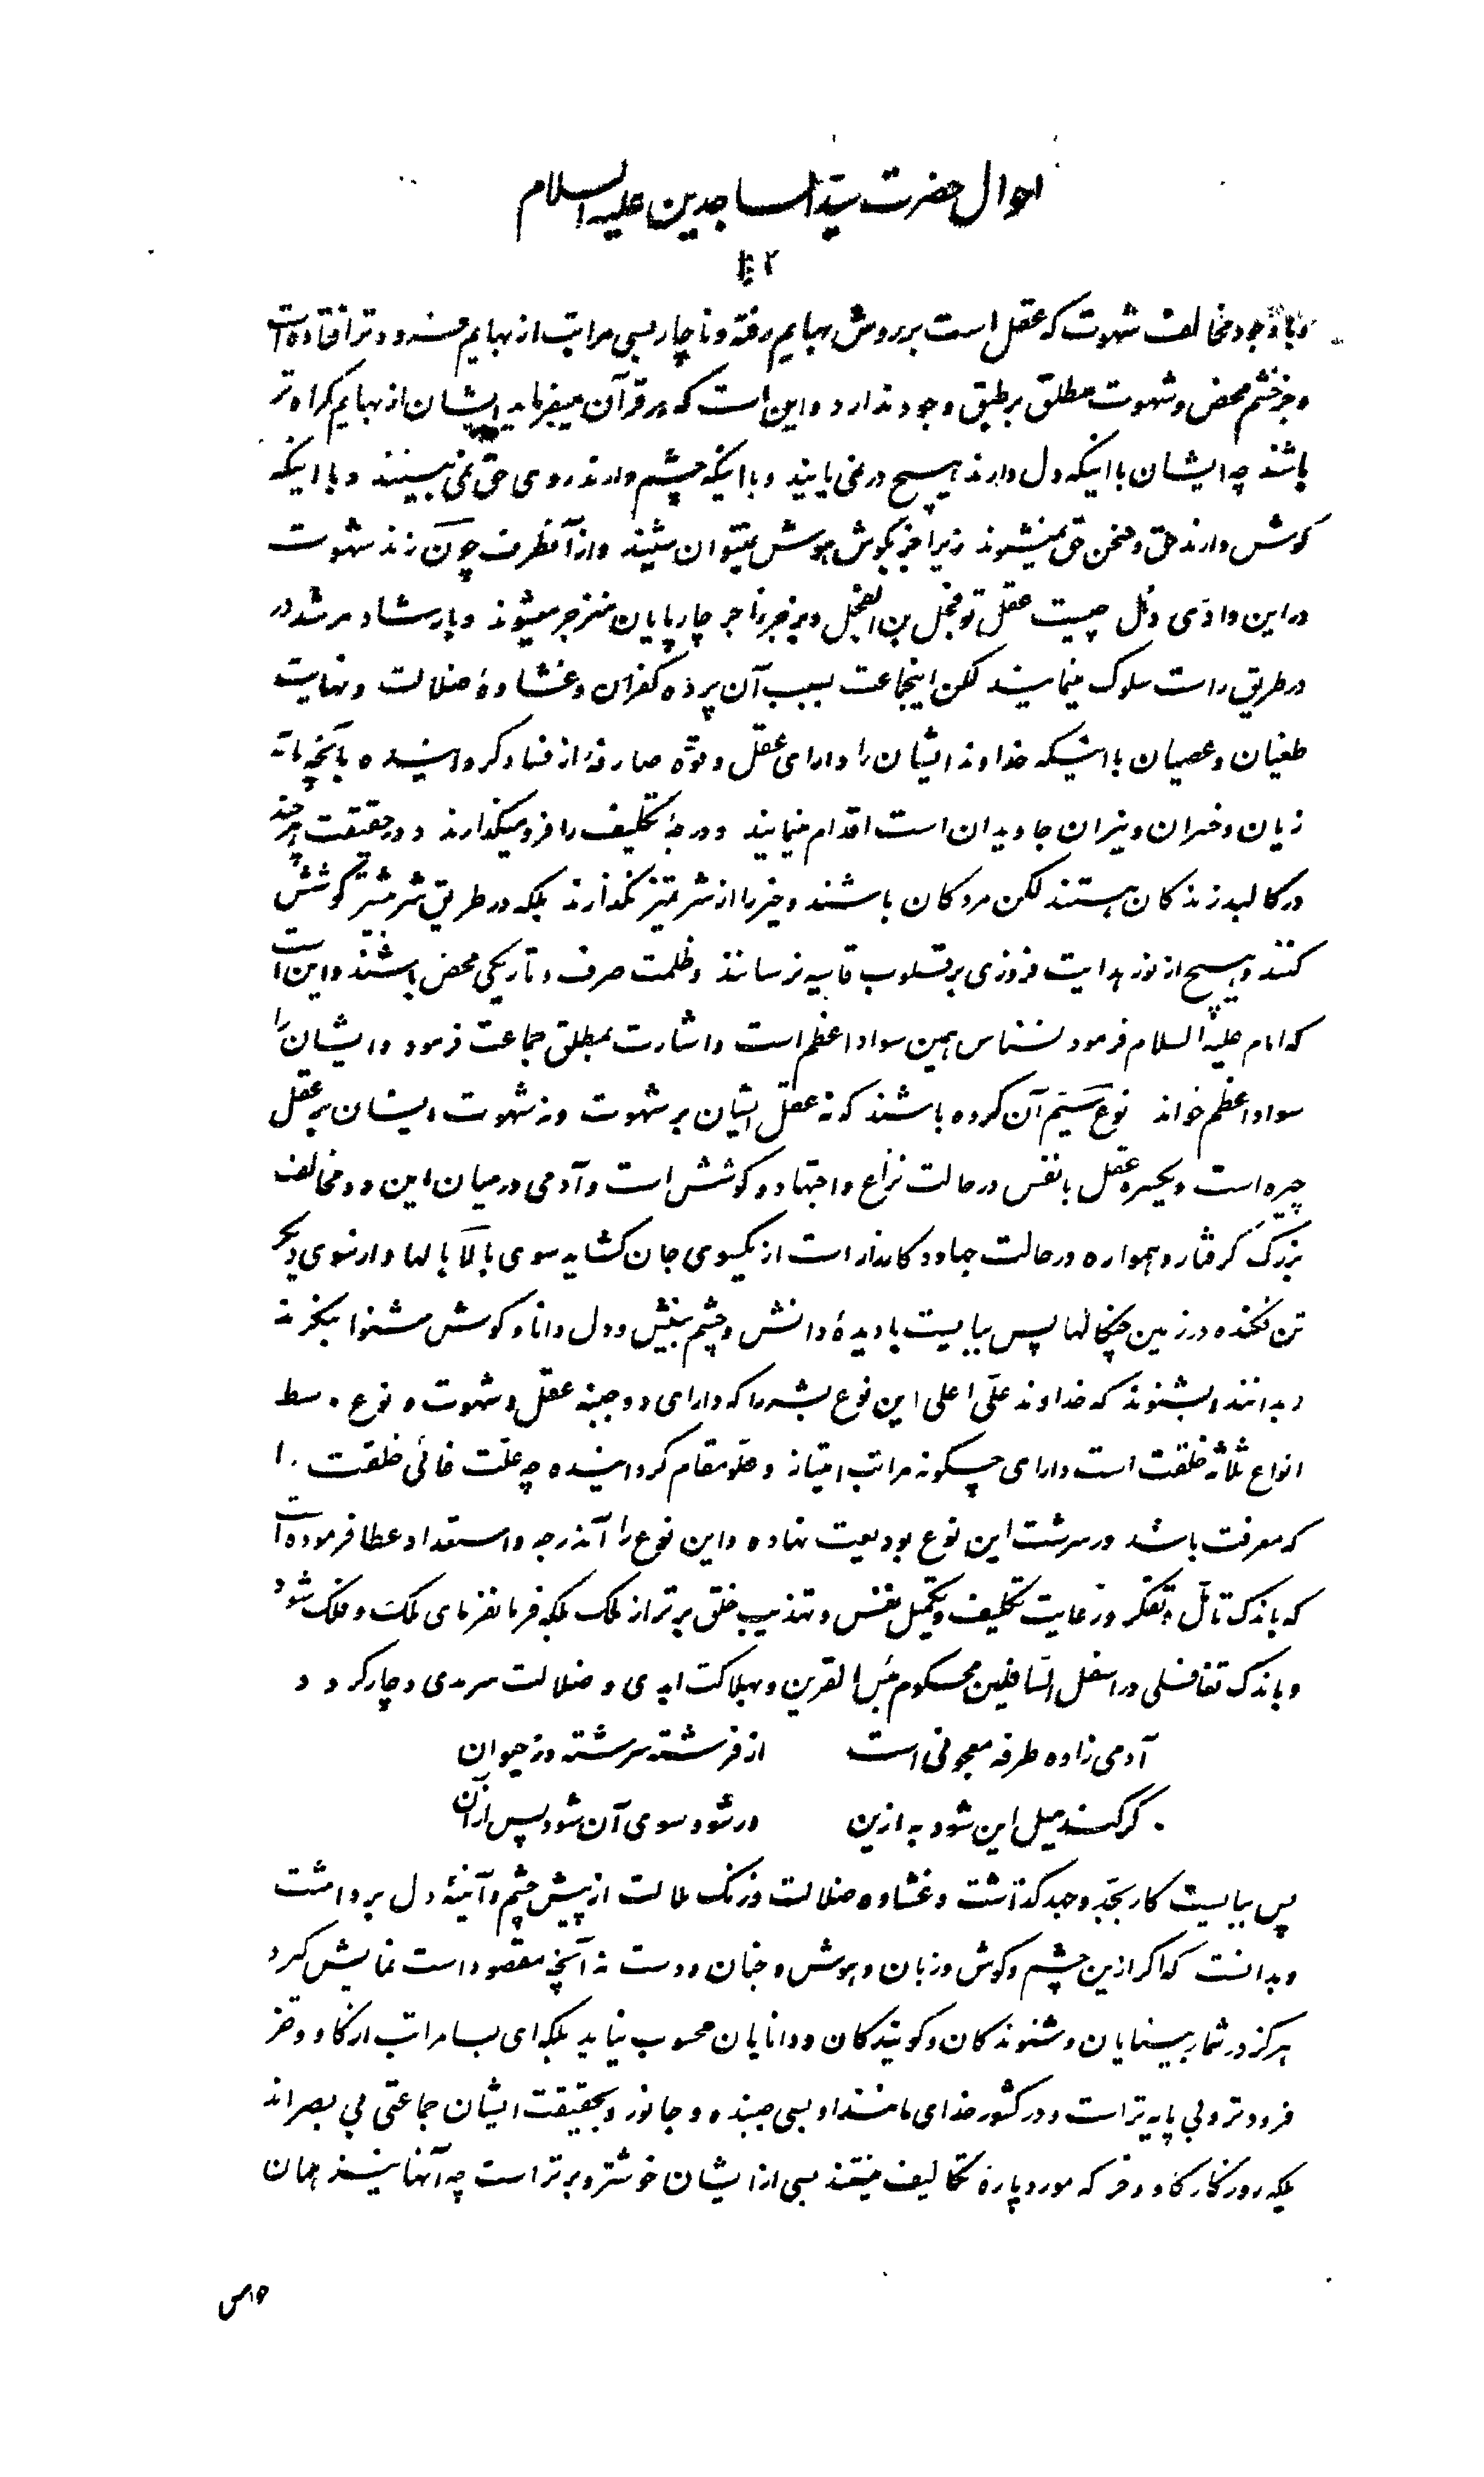 احوال حضرت سید الساجدین علیه السلام
و با وجود مخالف شهوت که عقل است بر روش بهایم رفته و ناچار بسی مراتب از بهایم فرودتر افتاده است
و جز خشم محض و شهوت مطلق بر طبق وجود ندارد و این است که در قرآن میفرماید ایشان از بهایم گمراه تر
باشند چه ایشان با اینکه دل دارند هیچ در نمی یابند و با اینکه چشم دارند روی حق نمی بینند و با اینکه
کوش دارند حق و سخن حق نمیشنوند زیرا جز بکوش هوش نمیتوان شنید و از آنطرف چون زند شهوت
در این وادی دهل چیست عقل تو فجل بن الفجل و بزجر زاجر چارپایان منزجر میشوند و بارشاد مرشد در
در طریق راست سلوک مینمایند لکن اینجماعت بسبب آن پرده کفران و غشاوهٔ ضلالت و نهایت
طغیان و عصیان با اینکه خداوند ایشان را دارای عقل و قوّه صارفه از فساد گردانیده بآنچه مایه
زیان و خسران و نیران جاویدان است اقدام مینمایند و درجهٔ تکلیف را فرو میگذارند و در حقیقت هر چند
در کالبد زندکان هستند لکن مردکان باشند و خیر را از شر تمیز نگذارند بلکه در طریق شر بیشتر کوشش
کنند و هیچ از نور هدایت فروزی بر قلوب قاسیه نرسانند و ظلمت صرف و تاریکی محض باشند و این است
که امام علیه السلام فرمود نسناس همین سواد اعظم است و اشارت بمطلق جماعت فرمود و ایشان را
سواد اعظم خواند نوع سیّم آن گروه باشند که نه عقل ایشان بر شهوت و نه شهوت ایشان بر عقل
چیره است و یکسره عقل با نفس در حالت نزاع و اجتهاد و کوشش است و آدمی در میان این دو مخالف
بزرک کرفتار و همواره در حالت جهاد و کارزار است از یکسوی جان کشاید سوی بالا بالها و از سوی دیگر
تن فکنده در زمین چنکالها پس ببایست با دیدهٔ دانش و چشم بینش و دل دانا و کوش شنوا بنکرند
و بدانند و بشنوند که خداوند علّی اعلی این نوع بشر را که دارای دو جنبه عقل و شهوت و نوع وسط
انواع ثلاثه خلقت است دارای چگونه مراتب امتیاز و علو مقام گردانیده چه علّت غائی خلقت را
که معرفت باشد در سرشت این نوع بودیعت نهاده و این نوع را آندرجه و استعداد عطا فرموده است
که باندک تأمّل و تفکر و رعایت تکلیف و تکمیل نفس و تهذیب خلق برتر از ملک بلکه فرمانفرمای ملک و فلک شود
و باندک تغافلی در اسفل السّافلین محکوم بئس القرین و بهلاکت ابدی و ضلالت سرمدی دچار گردد
آدمی زاده طرفه معجونی است از فرشته سرشته وز حیوان
گر کند میل این شود به ازین ور شود سوی آن شود پس از آن
پس ببایست کار بجدّ و جهد گذاشت و غشاوه ضلالت و زنک ملالت از پیش چشم و آئینهٔ دل برداشت
و بدانست که اکر ازین چشم و کوش و زبان و هوش و جنان و دست نه آنچه مقصود است نمایش گیرد
هرکز در شمار بینایان و شنوندکان و کویندکان و دانایان محسوب نیاید بلکه ای بسا مراتب از کاو و خر
فرودتر و بی پایه تر است و در کشور خدای مانند او بسی جنبده و جانور و بحقیقت ایشان جماعتی بی بصراند
بلکه روزکار کاو و خر که مورد پارهٔ تکالیف نیستند بسی از ایشان خوشتر و برتر است چه آنها نیز همان